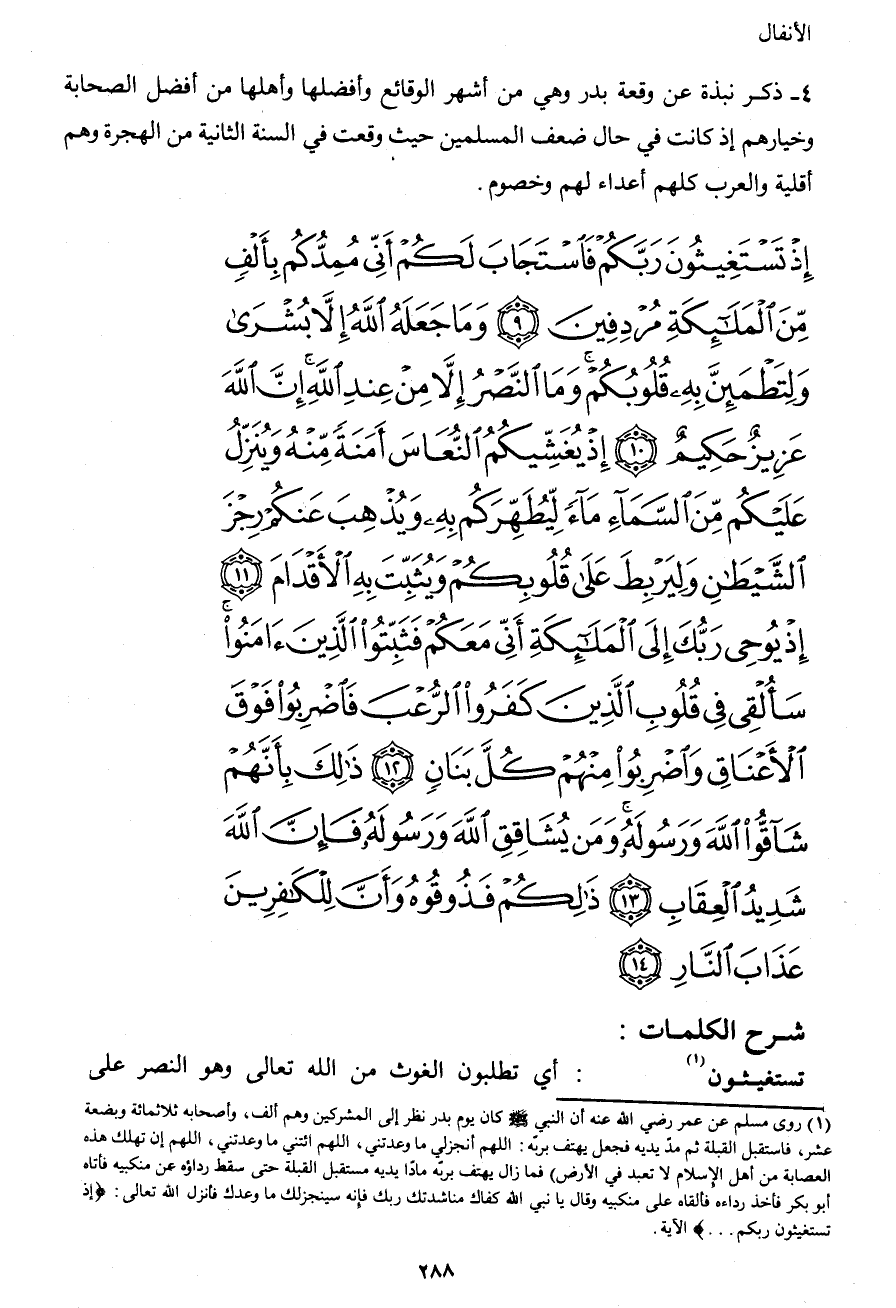 الأنفال
٤ـ ذكر نبذة عن وقعة بدر وهي من أشهر الوقائع وأفضلها وأهلها من أفضل الصحابة
وخيارهم إذ كانت في حال ضعف المسلمين حيث وقعت في السنة الثانية من الهجرة وهم
أقلية والعرب كلهم أعداء لهم وخصوم .
إِذْ تَسْتَغِيثُونَ رَبَّكُمْ فَٱسْتَجَابَ لَكُمْ أَنِّى مُمِدُّكُم بِأَلْفٍ
مِّنَ ٱلْمَلَٰٓئِكَةِ مُرْدِفِينَ ﴿٩﴾ وَمَا جَعَلَهُ ٱللَّهُ إِلَّا بُشْرَىٰ
وَلِتَطْمَئِنَّ بِهِۦ قُلُوبُكُمْ ۚ وَمَا ٱلنَّصْرُ إِلَّا مِنْ عِندِ ٱللَّهِ ۚ إِنَّ ٱللَّهَ
عَزِيزٌ حَكِيمٌ ﴿١٠﴾ إِذْ يُغَشِّيكُمُ ٱلنُّعَاسَ أَمَنَةً مِّنْهُ وَيُنَزِّلُ
عَلَيْكُم مِّنَ ٱلسَّمَآءِ مَآءً لِّيُطَهِّرَكُم بِهِۦ وَيُذْهِبَ عَنكُمْ رِجْزَ
ٱلشَّيْطَٰنِ وَلِيَرْبِطَ عَلَىٰ قُلُوبِكُمْ وَيُثَبِّتَ بِهِ ٱلْأَقْدَامَ ﴿١١﴾
إِذْ يُوحِى رَبُّكَ إِلَى ٱلْمَلَٰٓئِكَةِ أَنِّى مَعَكُمْ فَثَبِّتُوا۟ ٱلَّذِينَ ءَامَنُوا۟ ۚ
سَأُلْقِى فِى قُلُوبِ ٱلَّذِينَ كَفَرُوا۟ ٱلرُّعْبَ فَٱضْرِبُوا۟ فَوْقَ
ٱلْأَعْنَاقِ وَٱضْرِبُوا۟ مِنْهُمْ كُلَّ بَنَانٍ ﴿١٢﴾ ذَٰلِكَ بِأَنَّهُمْ
شَآقُّوا۟ ٱللَّهَ وَرَسُولَهُۥ ۚ وَمَن يُشَاقِقِ ٱللَّهَ وَرَسُولَهُۥ فَإِنَّ ٱللَّهَ
شَدِيدُ ٱلْعِقَابِ ﴿١٣﴾ ذَٰلِكُمْ فَذُوقُوهُ وَأَنَّ لِلْكَٰفِرِينَ
عَذَابَ ٱلنَّارِ ﴿١٤﴾
شرح الكلمات :
تستغيثون(١) : أي تطلبون الغوث من الله تعالى وهو النصر على
(١) روى مسلم عن عمر رضي الله عنه أن النبي ﷺ كان يوم بدر نظر إلى المشركين وهم ألف، وأصحابه ثلاثمائة وبضعة
عشر، فاستقبل القبلة ثم مدّ يديه فجعل يهتف بربّه : اللهم أنجزلي ما وعدتني، اللهم ائتني ما وعدتني، اللهم إن تهلك هذه
العصابة من أهل الإسلام لا تعبد في الأرض) فما زال يهتف بربّه مادًا يديه مستقبل القبلة حتى سقط رداؤه عن منكبيه فأتاه
أبو بكر فأخذ رداءه فألقاه على منكبيه وقال يا نبي الله كفاك مناشدتك ربك فإنه سينجزلك ما وعدك فأنزل الله تعالى : ﴿إذ
تستغيثون ربكم . . .﴾ الآية .
٢٨٨